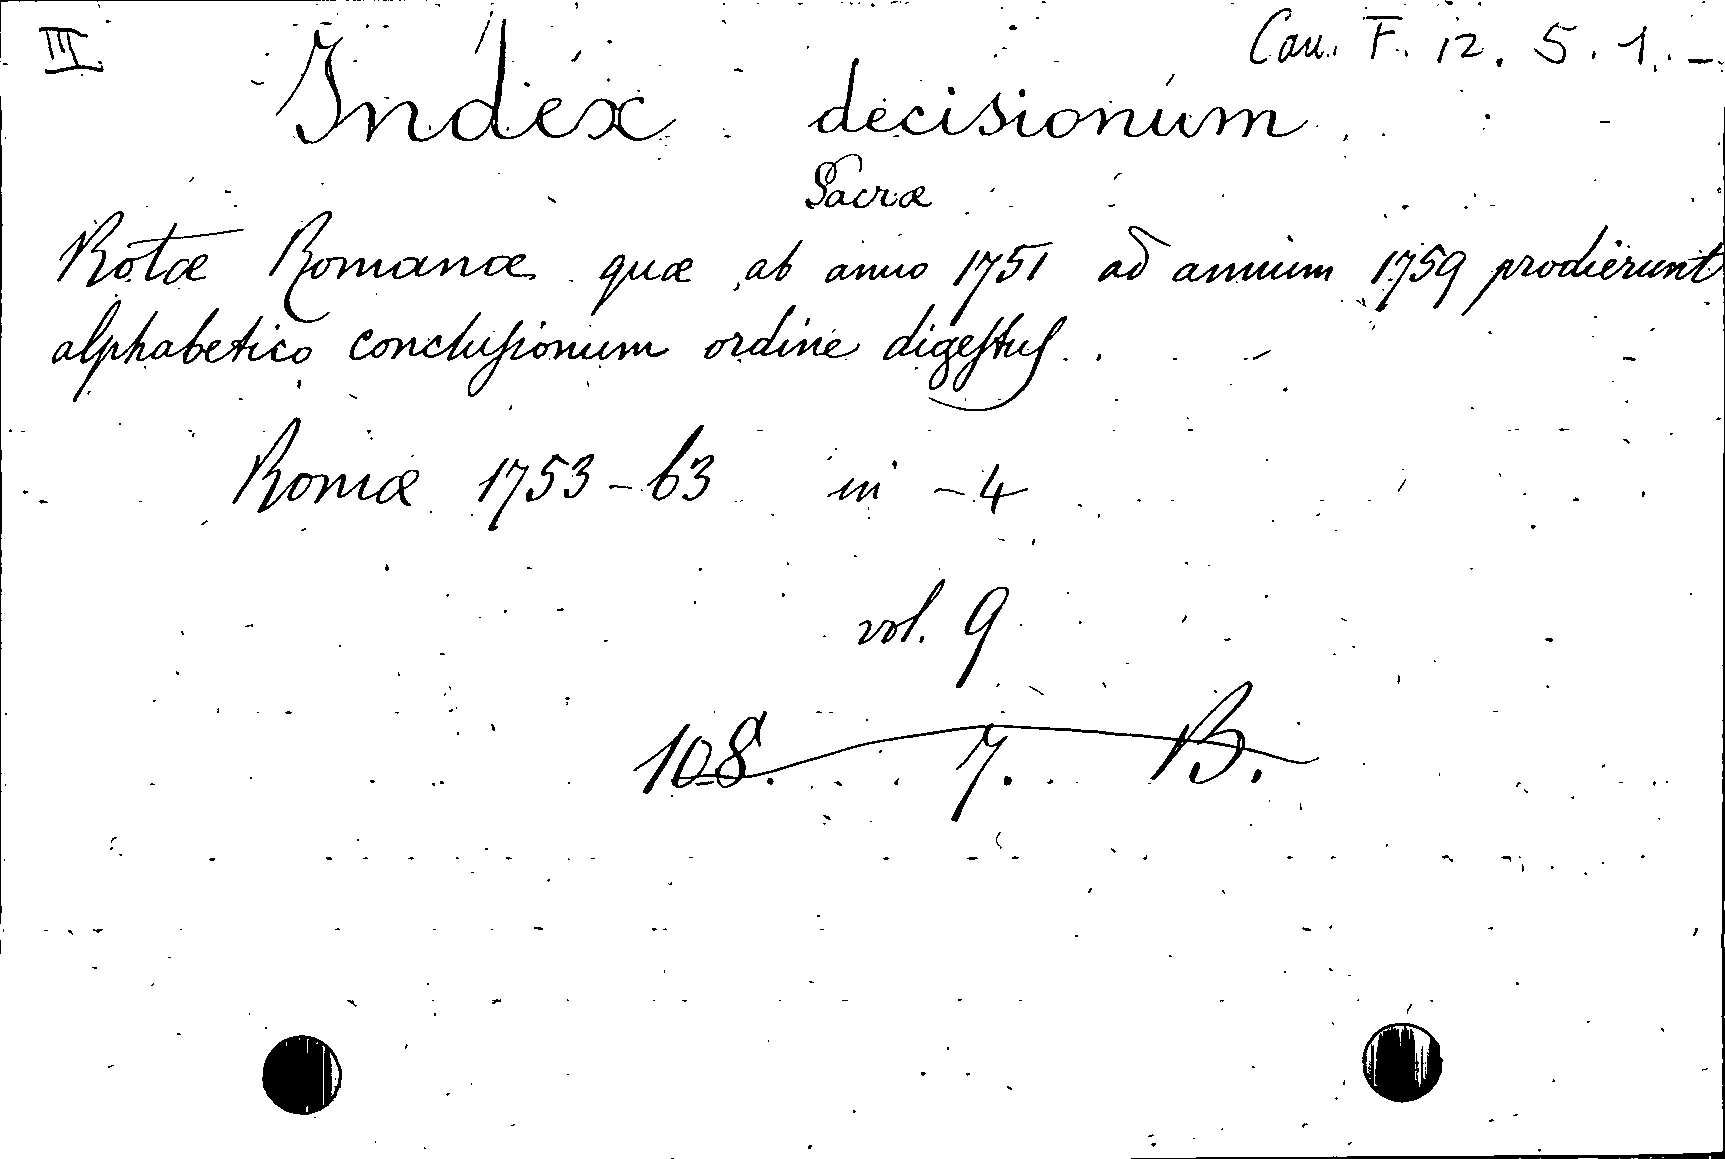 III Can. F. 12. 5. 1. -
Index decisionum
Sacræ
Rotæ Romanæ quæ ab anno 1751 ad annum 1759 prodierunt
alphabetico conclusionum ordine digestus.
Romæ 1753-63 in -4
vol. 9
108. 7. B.